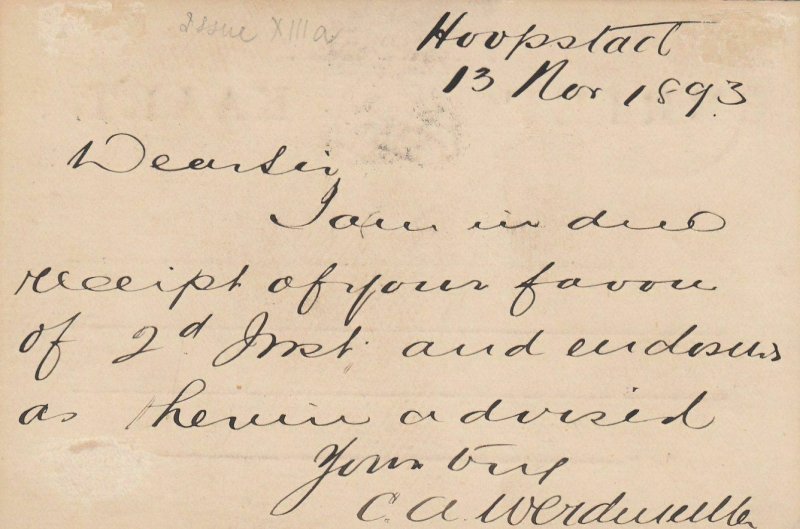 Issue XIIIa
Hoopstad
13 Nov 1893
Dear Sir,
I am in due
receipt of your favour
of 2d Inst. and enclosures
as therein advised
Yours truly
C. A.